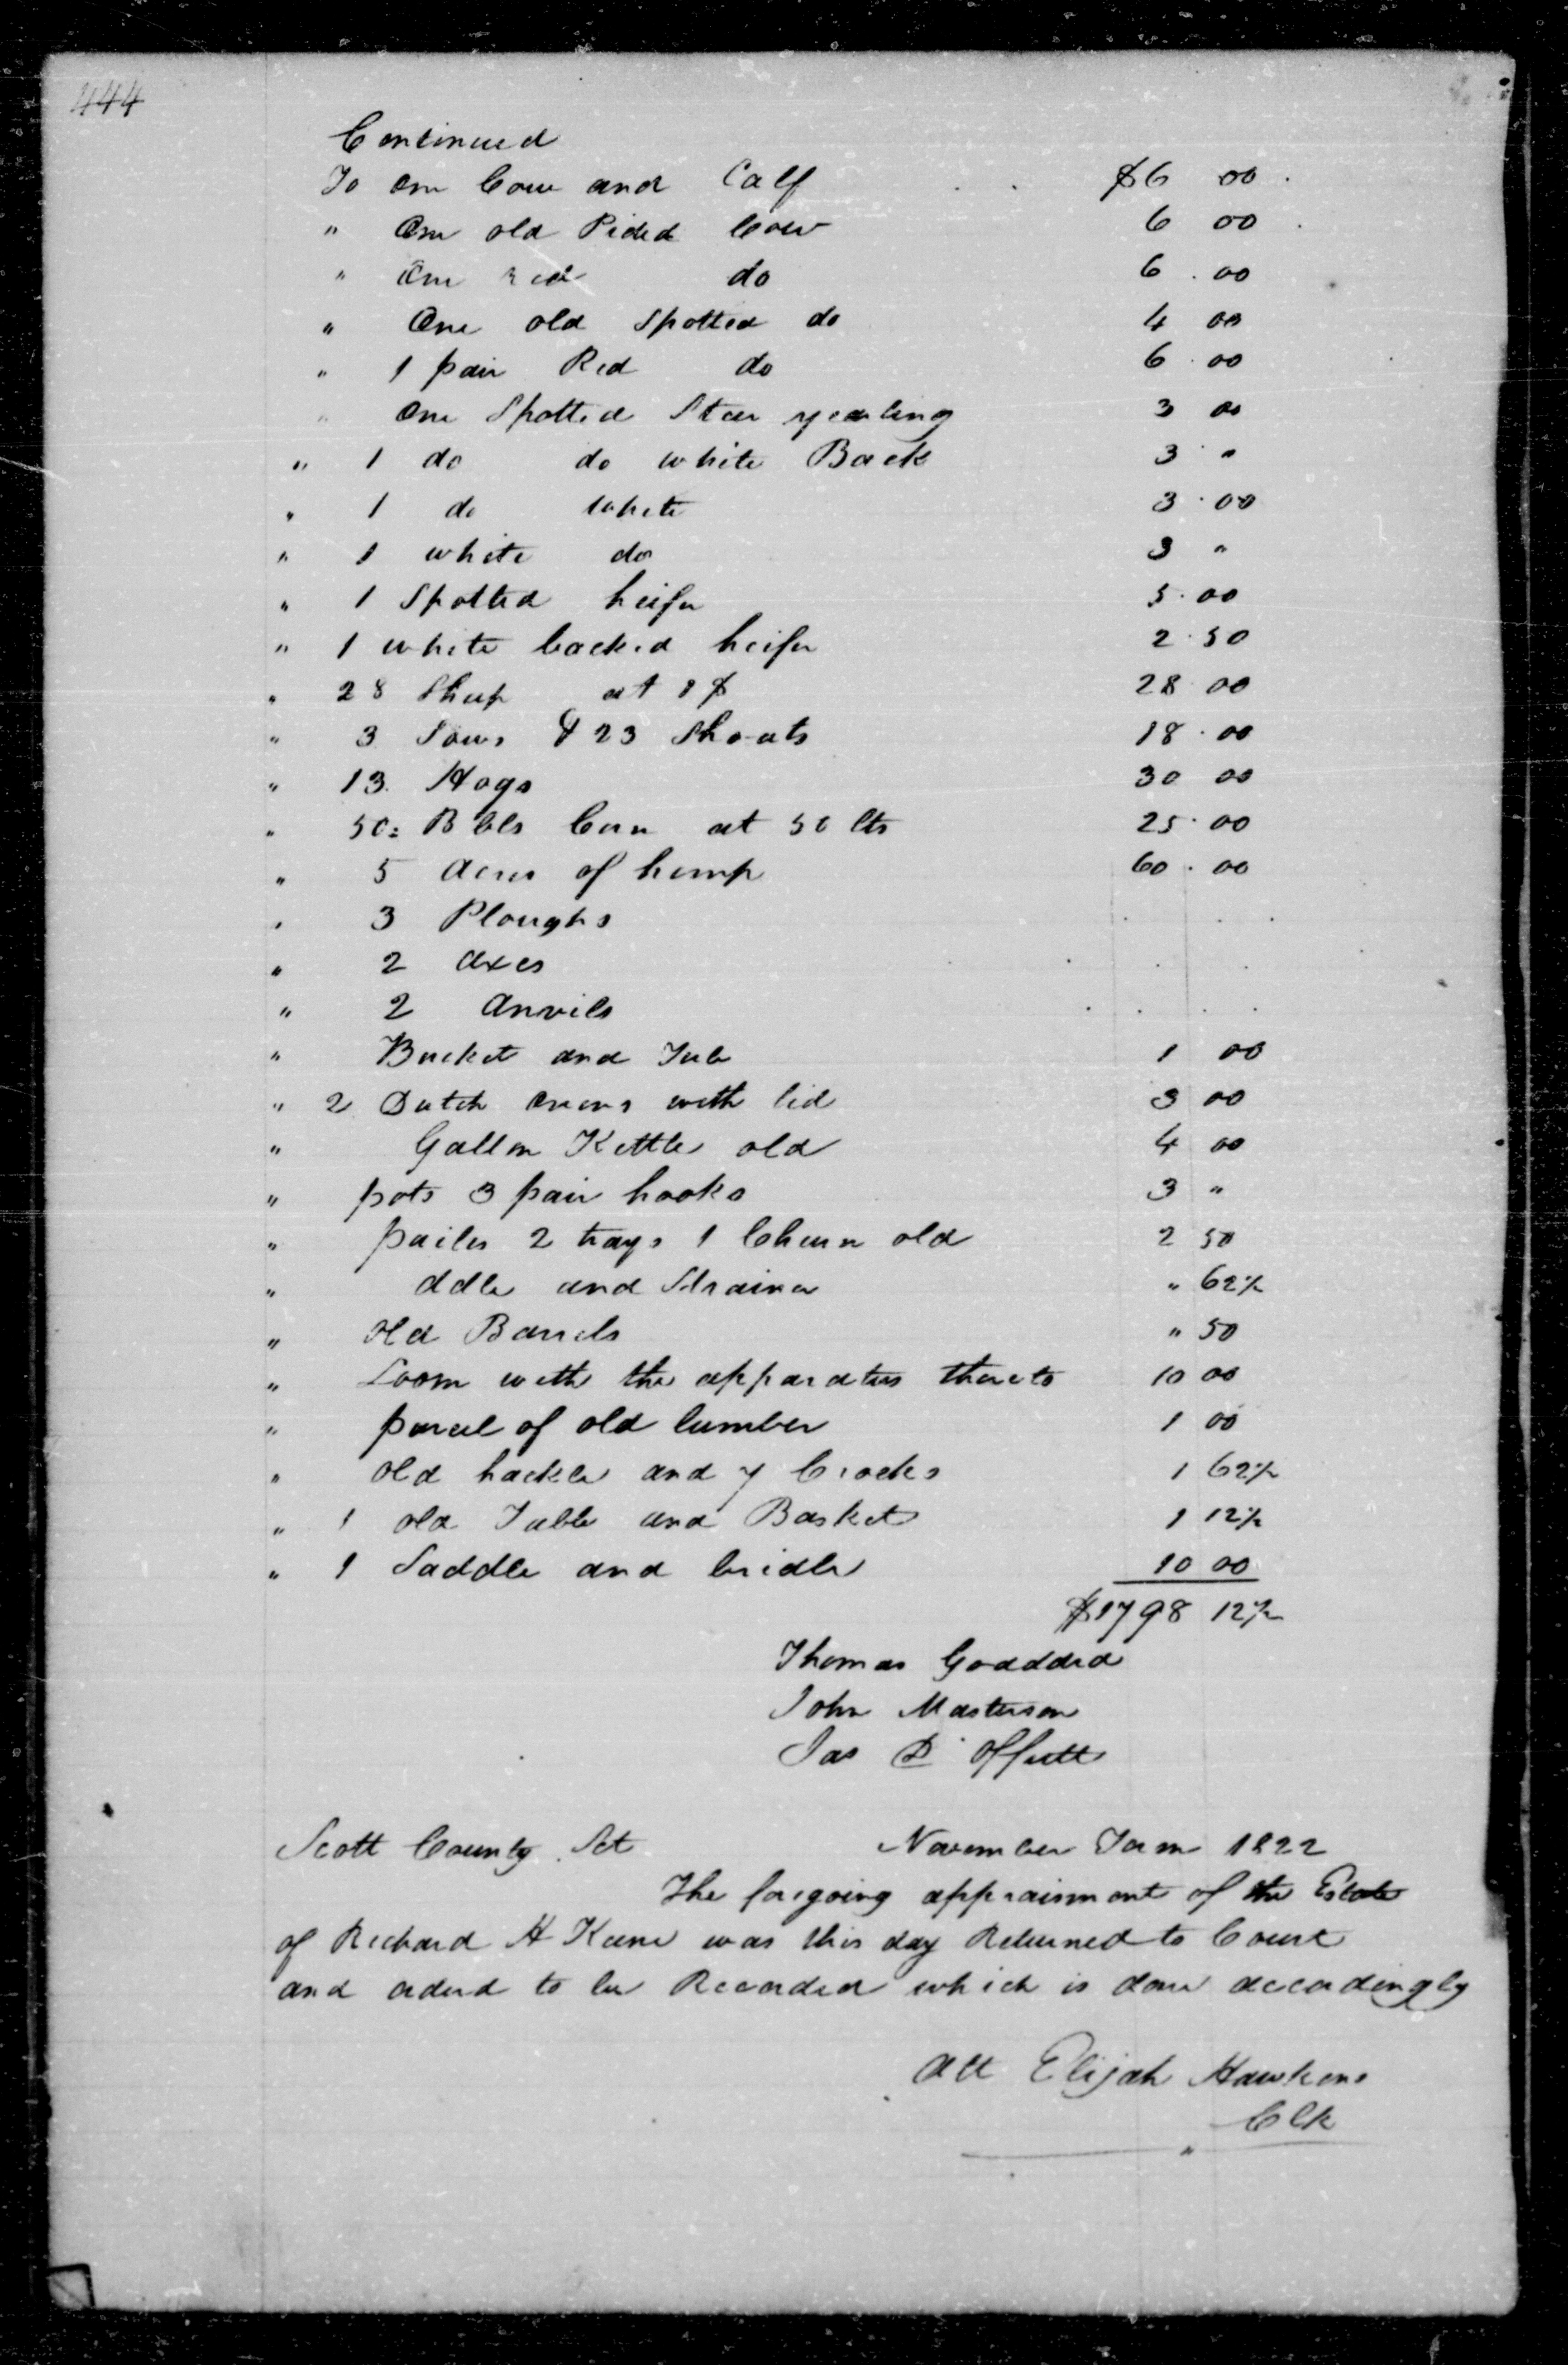 444
Continued
To one Cow and Calf $6 00
" One old Pided Cow 6 00
" One red do 6 . 00
" One old Spotted do 4 00
" 1 pair Red do 6 . 00
" One Spotted Steer yearling 3 00
" 1 do do white Back 3 "
" 1 do white 3 . 00
" 1 white do 3 "
" 1 Spotted heifer 5 . 00
" 1 white backed heifer 2 . 50
" 28 Sheep at 1$ 28 00
" 3 Sows & 23 Shoats 18 . 00
" 13 Hogs 30 00
" 50 = Bbls Corn at 50 Cts 25 . 00
" 5 Acres of hemp 60 . 00
" 3 Ploughs
" 2 axes
" 2 Anvils
" Bucket and Tub 1 00
" 2 Dutch ovens with lid 3 00
" Gallon Kettle old 4 00
" pots 3 pair hooks 3 "
" pailes 2 trays 1 Churn old 2 50
" ddle and Strainer " 62½
" old Barrels " 50
" Loom with the apparatus thereto 10 00
" parcel of old lumber 1 00
" old hackle and 7 Crocks 1 62½
" 1 old Table and Basket 1 12½
" 1 Saddle and bridle 10 00
$1798 12½
Thomas Godddard
John Masterson
Jas D Offutt
Scott County Sct November Term 1822
The foregoing appraisment of the Estate
of Richard H Keene was this day Returned to Court
and orderd to be Recorded which is done accordingly
Att Elijah Hawkins
Clk